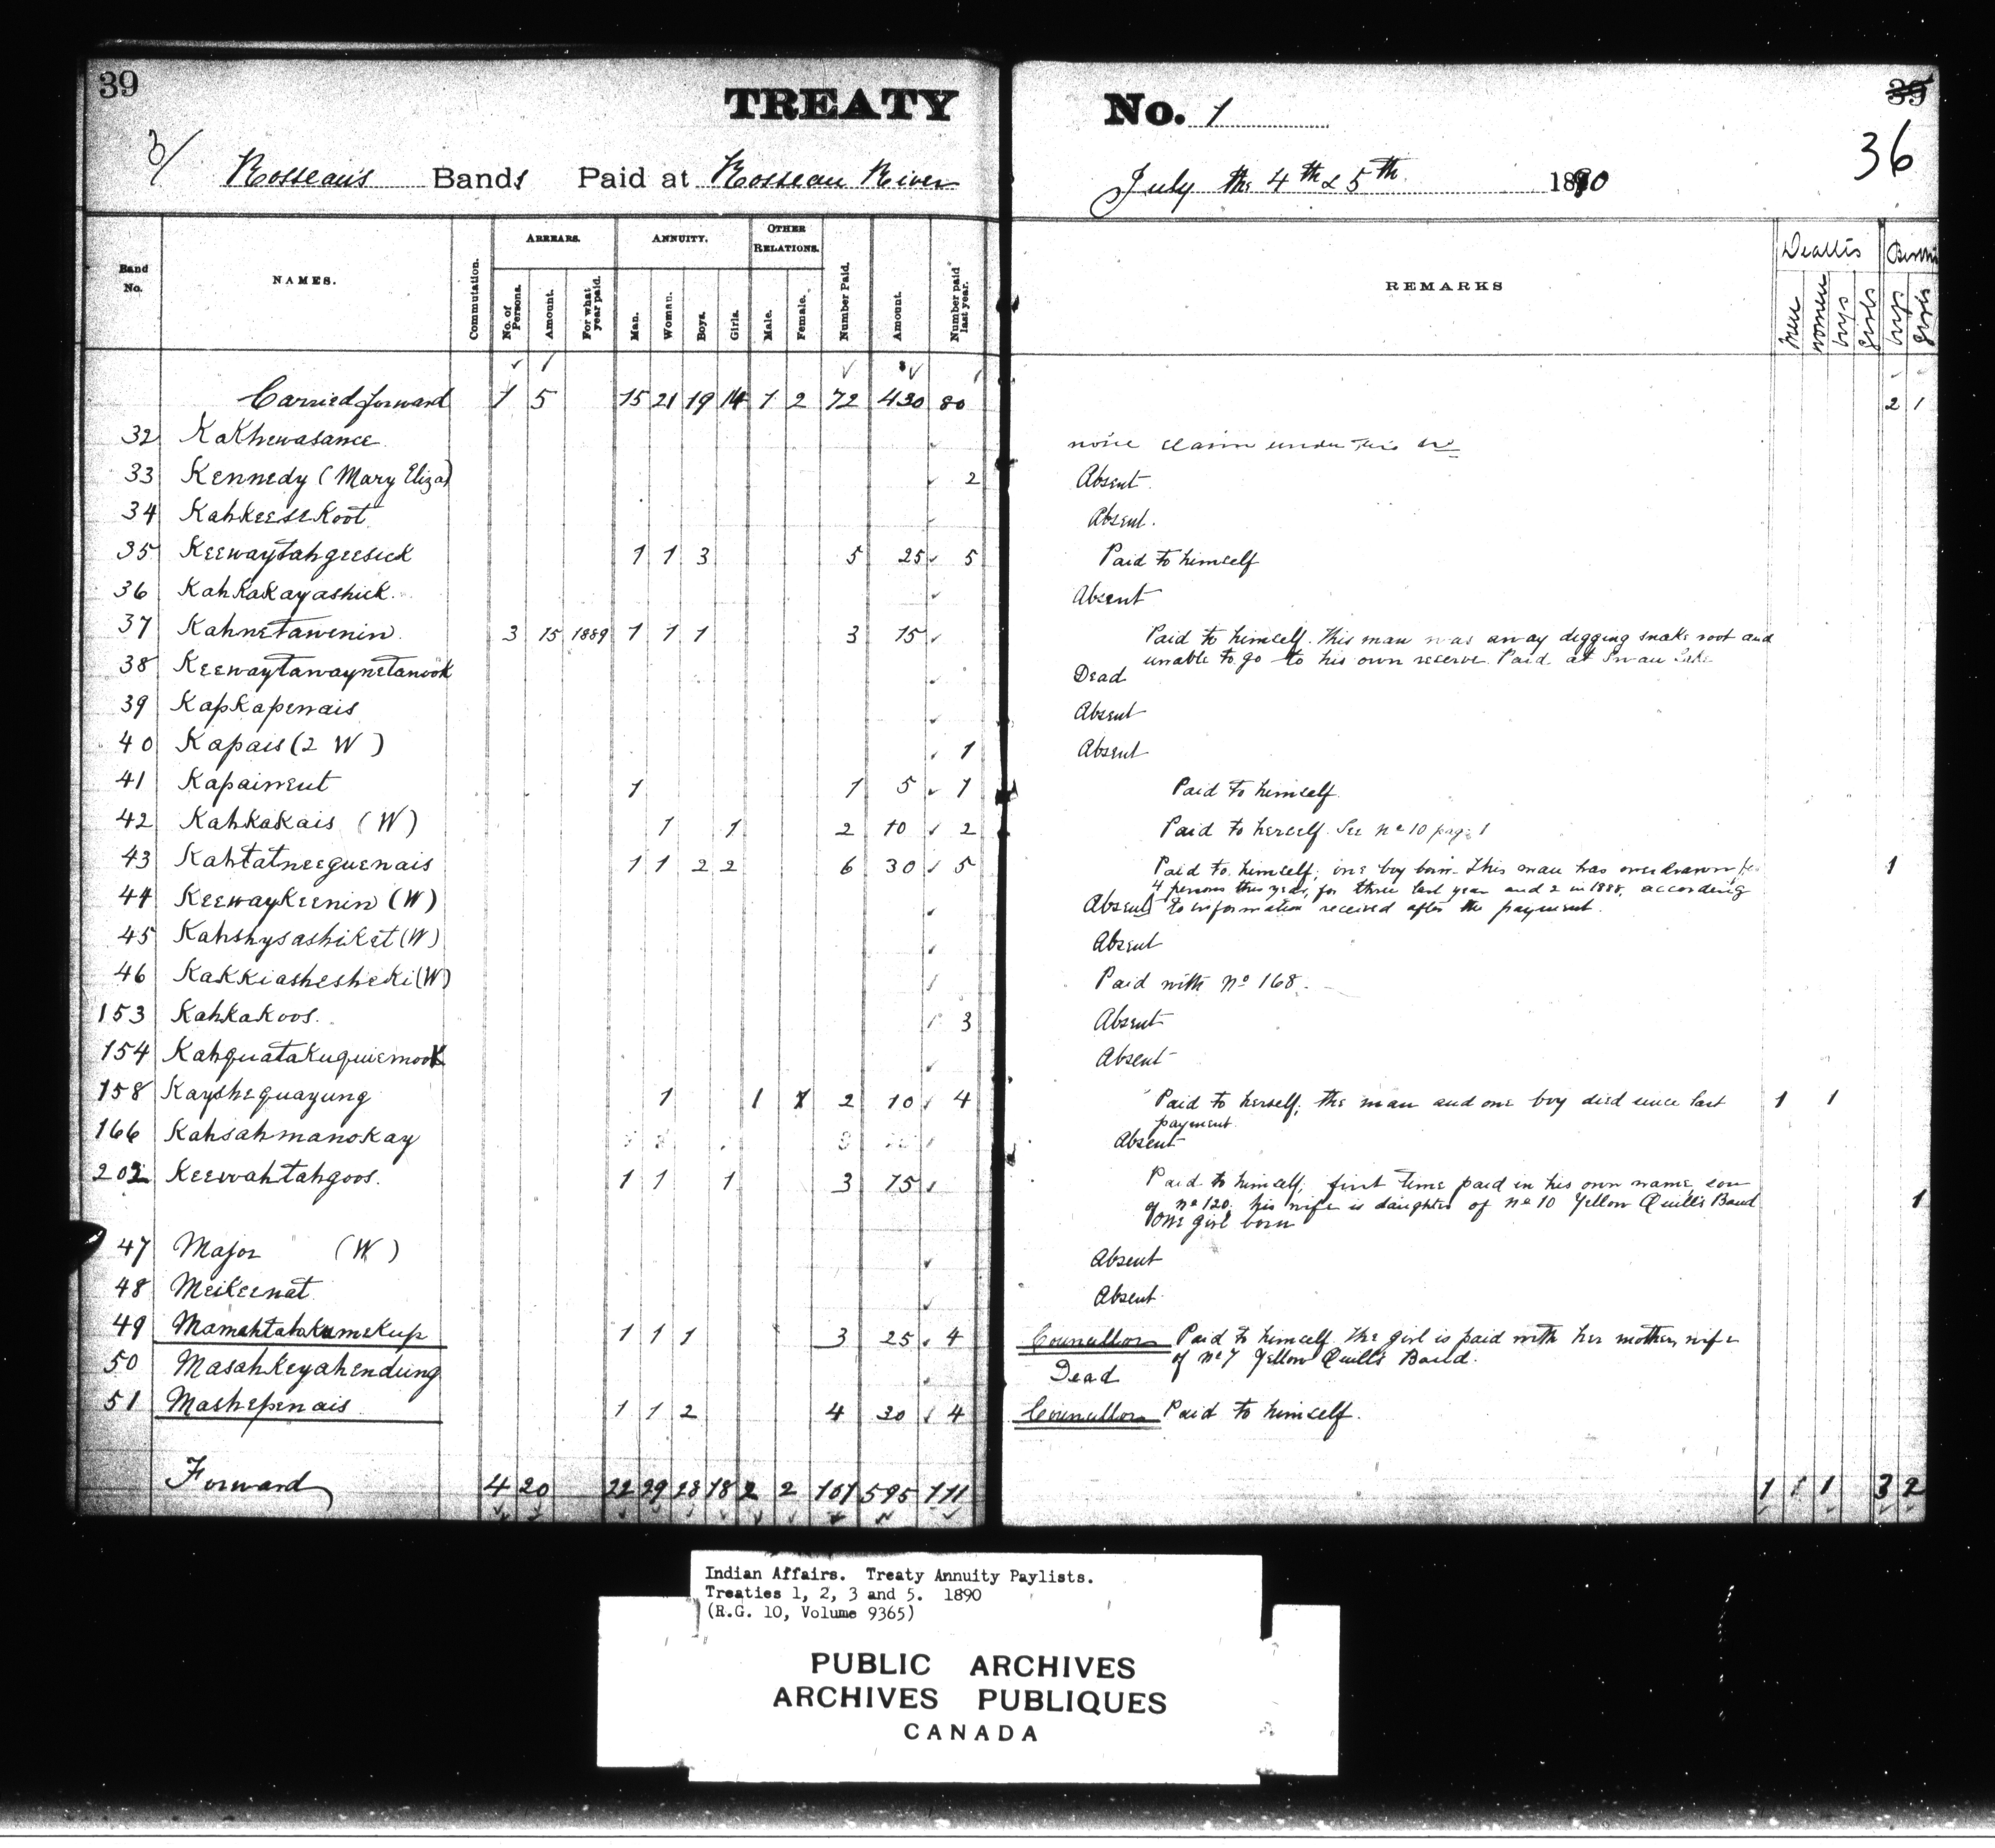 39
TREATY No. 1
35
36
3/
Rosseau's Bands Paid at Rosseau River July the 4th & 5th 1890
Band No. NAMES. Commutation. ARREARS. No. of Persons. Amount. For what year paid. ANNUITY. Man. Woman. Boys. Girls. OTHER RELATIONS. Male. Female. Number Paid. Amount. Number paid last year. REMARKS Deaths men women boys girls Births boys girls
Carried forward 1 5 15 21 19 14 1 2 72 430 80 2 1
32 Kakhewasance none claim under this No
33 Kennedy (Mary Eliza) 2 Absent
34 Kahkeesekoot Absent.
35 Keewaytahgeesick 1 1 3 5 25 5 Paid to himself
36 Kahkakayashick Absent
37 Kahnetawenin 3 15 1889 1 1 1 3 15 Paid to himself. This man was away digging snake root and
unable to go to his own reserve. Paid at Swan Lake
38 Keewaytawaynetanook Dead
39 Kapkapenais Absent
40 Kapais (2 W) 1 Absent
41 Kapaineut 1 1 5 1 Paid to himself.
42 Kahkakais (W) 1 1 2 10 2 Paid to herself. See No 10 page 1
43 Kahtatneeguenais 1 1 2 2 6 30 5 Paid to himself; one boy born. This man has overdrawn for 1
4 persons this year, for three last year and 2 in 1888, according
to information received after the payment.
44 Keewaykeenin (W) Absent
45 Kahshysashiket (W) Absent
46 Kakkiashesheki (W) Paid with No 168.
153 Kahkakoos. 3 Absent
154 Kahquatakuquiemook Absent
158 Kayshequayung 1 1 1 2 10 4 Paid to herself; the man and one boy died since last 1 1
payment.
166 Kahsahmanokay Absent
202 Keewahtahgoos. 1 1 1 3 15 Paid to himself; first time paid in his own name son
of No 120. his wife is daughter of No 10 Yellow Quill's Band 1
One girl born
47 Major (W) Absent
48 Meikeenat Absent
49 Mamahtatakamekup 1 1 1 3 25 4 Councillor Paid to himself. The girl is paid with her mother, wife
of No 7 Yellow Quill's Band.
50 Masahkeyahendung Dead
51 Mashepenais 1 1 2 4 30 4 Councillor Paid to himself.
Forward 4 20 22 29 28 18 2 2 101 595 111 1 1 1 3 2
Indian Affairs. Treaty Annuity Paylists.
Treaties 1, 2, 3 and 5. 1890
(R.G. 10, Volume 9365)
PUBLIC ARCHIVES
ARCHIVES PUBLIQUES
CANADA